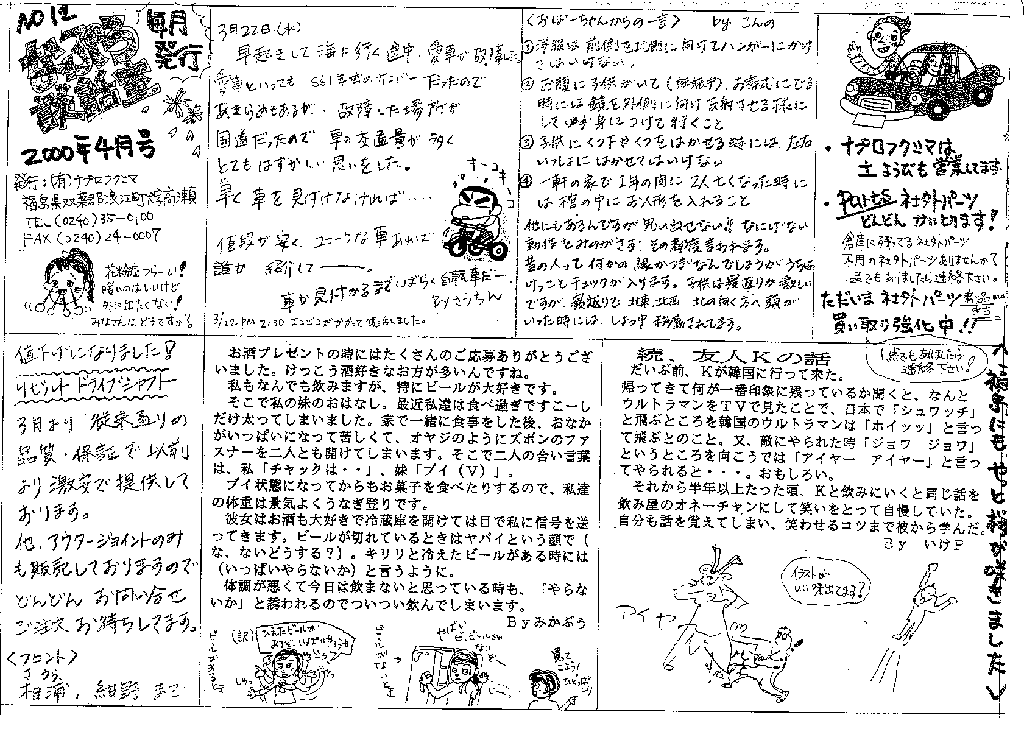 NO12
毎月
発行
2000年4月号
発行:(有)ナプロフクシマ
福島県双葉郡浪江町大字高瀬
TEL(0240)35-0100
FAX(0240)24-0007
花粉症つらーい!
暖かいのはいいけど
外に出たくない!
みなさんはどうですか?
3月22日(水)
早起きして海に行く途中、愛車が故障
愛車といっても S61年式の だったので
あきらめもあるが、故障した場所が
国道だったので 車の交通量が多く
とてもはずかしい思いをした。
早く車を見付けなければ・・・・
値段が安く、ユニークな車あれば
誰か 紹介して――。
車が見付かるまでしばらく自転車だー
3/22 PM 2:30 エンジンがかかって復活しました。
<おばーちゃんからの一言> by こんの
②お腹に子供がいて(妊娠中)、お葬式にでる
時には鏡を外側に向け反射させる様に
して必ず身につけて行くこと
③子供にくつ下やくつをはかせる時には、左右
いっしょにはかせてはいけない
④一軒の家で1年の間に2人亡くなった時に
は棺の中にお人形を入れること
他にもあるんですが思い出せない!なにげない
動作をみのがさず その都度言われます。
昔の人って何かの縁かつぎなんでしょうが
けっこうチェックが入ります。子供は寝返りが激しい
ですが、寝返りで北東、北西 北の向く方へ頭が
いった時には、しょっ中移動されてます。
・ナプロフクシマは
土ようびも営業してます
・Parts 社外パーツ
どんどんかいとります!
倉庫に残ってる社外パーツ
不用の社外パーツありませんか?
ありましたら連絡下さい。
ただいま社外パーツ
買い取り強化中!!
値下げになりました!
リビルト ドライブシャフト
3月より 従来通りの
品質・保証で以前
より激安で提供して
おります。
他、アウタージョイントのみ
も販売しておりますので
どんどん お問い合せ
ご注文お待ちしてます。
<フロント>
相浦、紺野まで
お酒プレゼントの時にはたくさんのご応募ありがとうござ
いました。けっこう酒好きなお方が多いんですね。
私もなんでも飲みますが、特にビールが大好きです。
そこで私の妹のおはなし。最近私達は食べ過ぎですこーし
だけ太ってしまいました。家で一緒に食事をした後、おなか
がいっぱいになって苦しくて、オヤジのようにズボンのファ
スナーを二人とも開けてしまいます。そこで二人の合い言葉
は、私「チャックは・・」、妹「ブイ(V)」。
ブイ状態になってからもお菓子を食べたりするので、私達
の体重は景気よくうなぎ登りです。
彼女はお酒も大好きで冷蔵庫を開けては目で私に信号を送
ってきます。ビールが切れているときはヤバイという顔で(
な、ないどうする?)。キリリと冷えたビールがある時には
(いっぱいやらないか)と言うように。
体調が悪くて今日は飲まないと思っている時も、「やらな
いか」と誘われるのでついつい飲んでしまいます。
Byみかぷぅ
続、友人Kの話
だいぶ前、Kが韓国に行って来た。
帰ってきて何が一番印象に残っているか聞くと、なんと
ウルトラマンをTVで見たことで、日本で「シュワッチ」
と飛ぶところを韓国のウルトラマンは「ホイッッ」と言っ
て飛ぶとのこと。又、敵にやられた時「ジョワ ジョワ」
というところを向こうでは「アイヤー アイヤー」と言っ
てやられると・・・。おもしろい。
それから半年以上たった頃、Kと飲みにいくと同じ話を
飲み屋のオネーチャンにして笑いをとって自慢していた。
自分も話を覚えてしまい、笑わせるコツまで彼から学んだ。
By いけP
アイヤー
<福島にもやっと桜が咲きました>